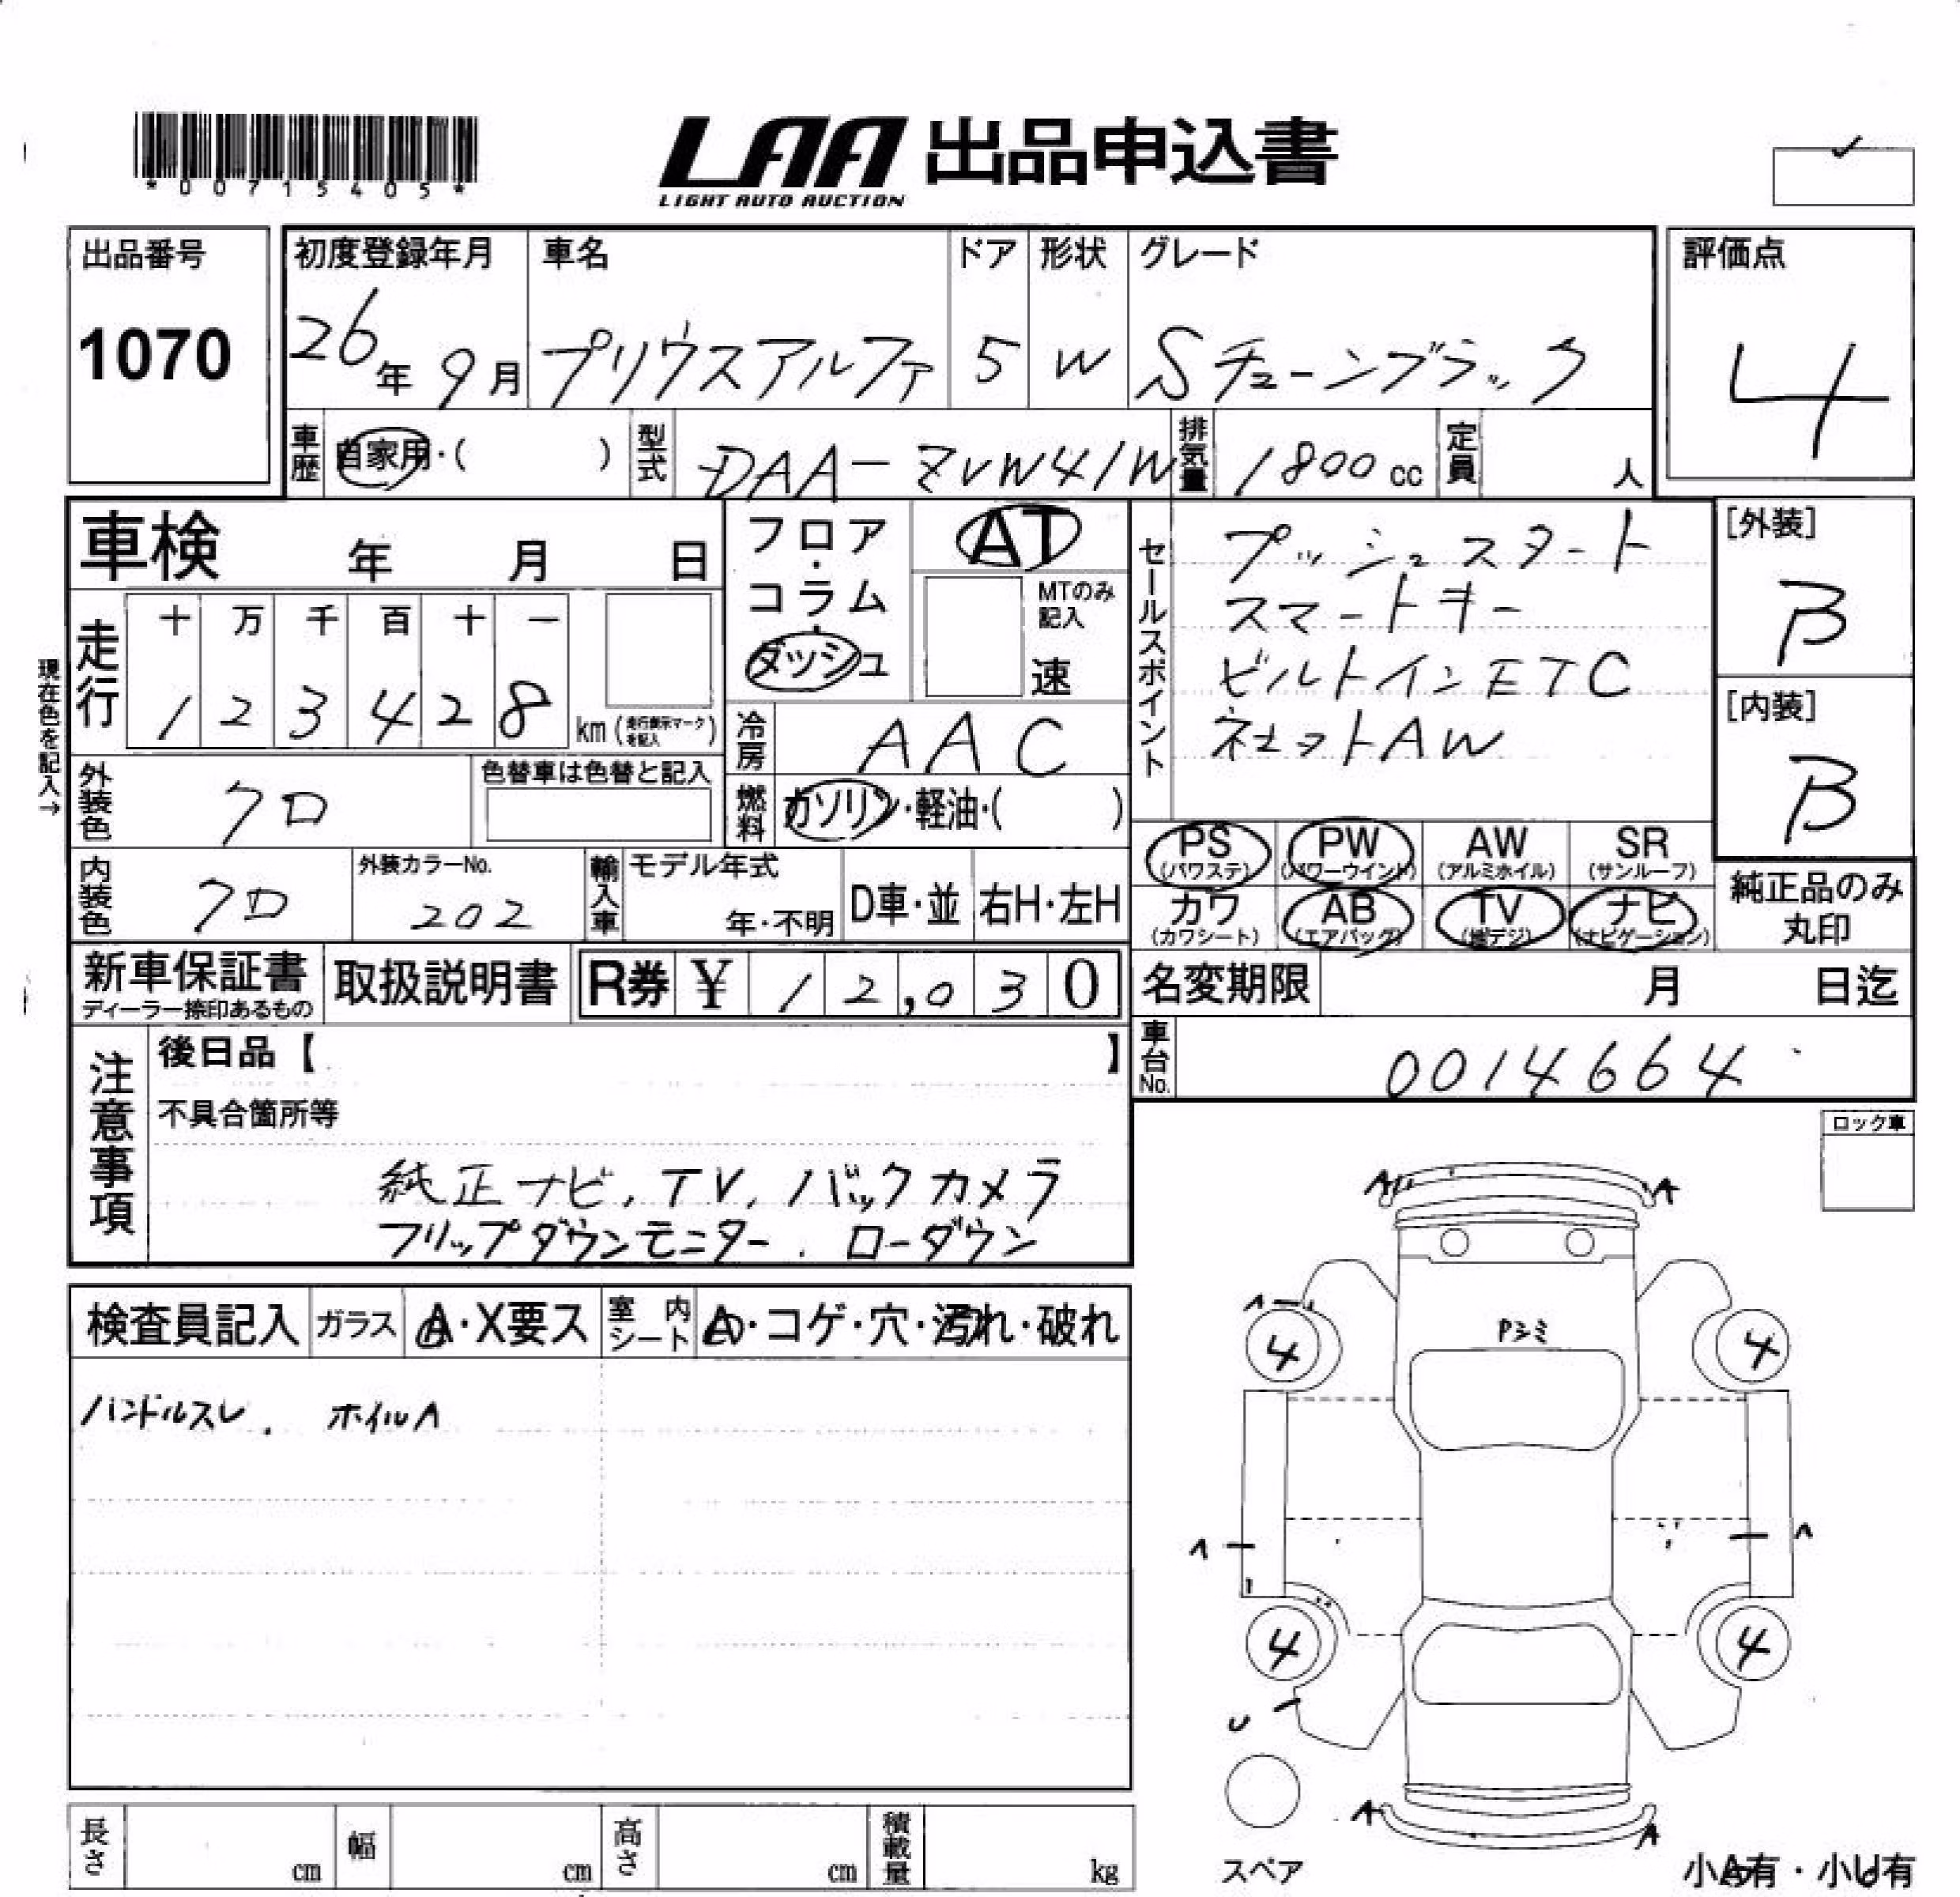 *00715405*
LAA 出品申込書
LIGHT AUTO AUCTION
出品番号
1070
初度登録年月
26年 9月
車名
プリウスアルファ
ドア
5
形状
W
グレード
Sチューンブラック
評価点
4
車歴 自家用・( )
型式 DAA-ZVW41W
排気量 1800cc
定員 人
車検 年 月 日
フロア・コラム・ダッシュ
AT
MTのみ記入
速
セールスポイント
プッシュスタート
スマートキー
ビルトインETC
社セットAW
[外装]
B
[内装]
B
現在色を記入→
走行
十 万 千 百 十 一
1 2 3 4 2 8 km (走行表示マークを記入)
冷房 AAC
外装色 クロ
色替車は色替と記入
燃料 ガソリン・軽油・( )
PS (パワステ) PW (パワーウインド) AW (アルミホイル) SR (サンルーフ)
カワ (カワシート) AB (エアバッグ) TV (地デジ) ナビ (ナビゲーション)
純正品のみ丸印
内装色 クロ
外装カラーNo.
202
輸入車 モデル年式
年・不明
D車・並
右H・左H
新車保証書
ディーラー捺印あるもの
取扱説明書
R券 ¥ 12,030
名変期限 月 日迄
車台No. 0014664
注意事項
後日品【 】
不具合箇所等
純正ナビ、TV、バックカメラ
フリップダウンモニター、ローダウン
ロック車
検査員記入
ガラス A・X要ス
室内シート A・コゲ・穴・汚れ・破れ
ハンドルスレ、 ホイルA
A A
A
Pシミ
4 4
A A
4 4
U
A A
スペア
小A有・小U有
長さ cm
幅 cm
高さ cm
積載量 kg